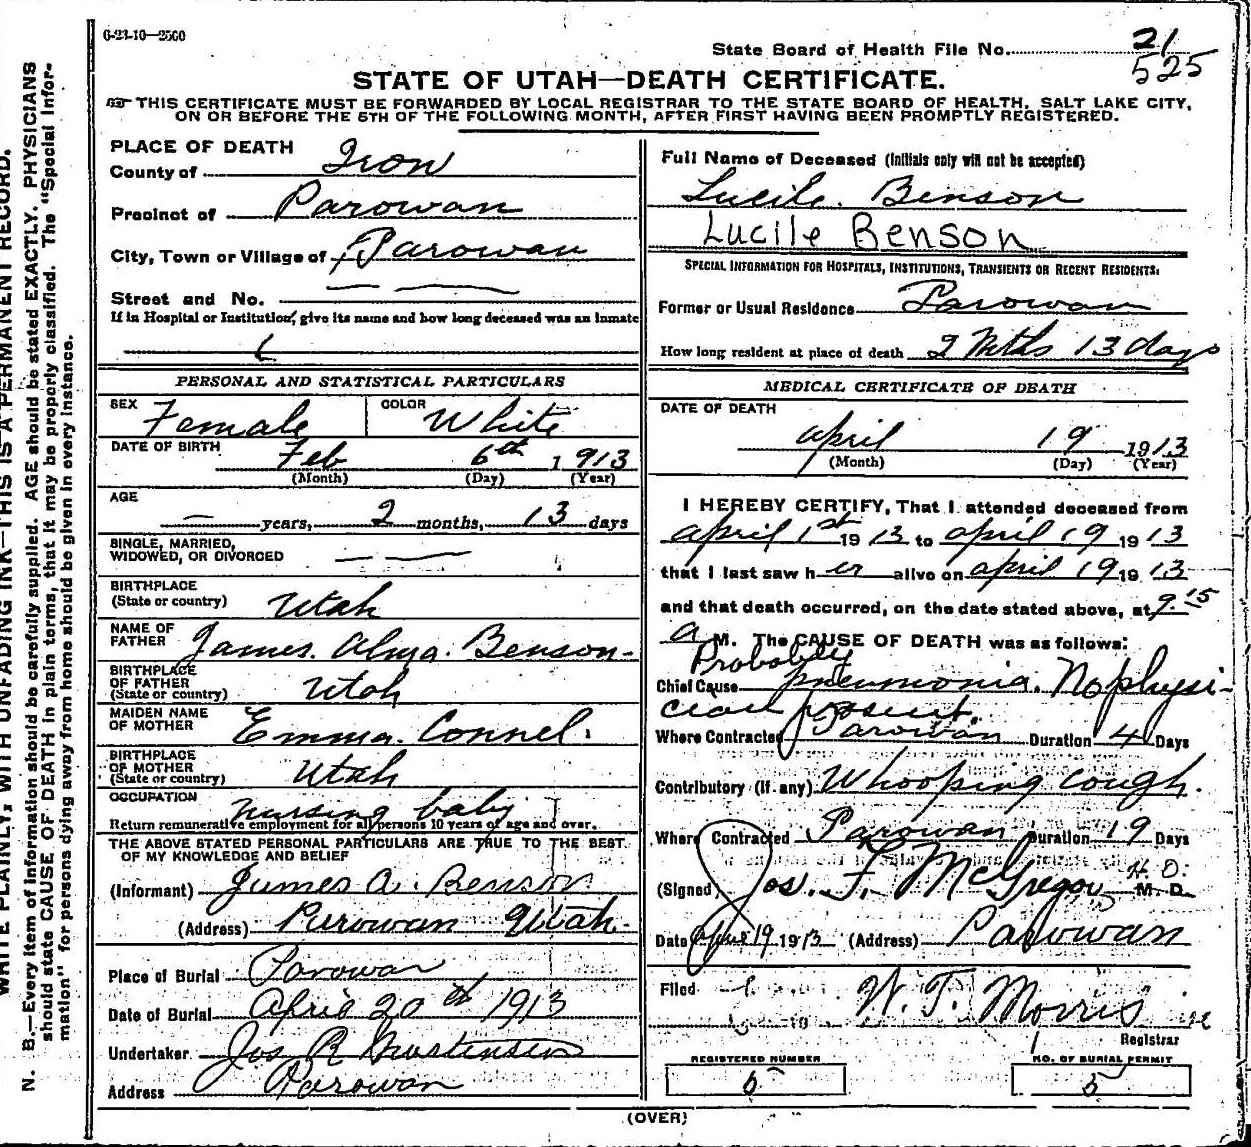 6-23-10—2500
State Board of Health File No. 21
525
STATE OF UTAH—DEATH CERTIFICATE.
THIS CERTIFICATE MUST BE FORWARDED BY LOCAL REGISTRAR TO THE STATE BOARD OF HEALTH, SALT LAKE CITY,
ON OR BEFORE THE 5TH OF THE FOLLOWING MONTH, AFTER FIRST HAVING BEEN PROMPTLY REGISTERED.
WRITE PLAINLY, WITH UNFADING INK—THIS IS A PERMANENT RECORD.
N. B.—Every item of information should be carefully supplied. AGE should be stated EXACTLY. PHYSICIANS
should state CAUSE OF DEATH in plain terms, that it may be properly classified. The "Special Infor-
mation" for persons dying away from home should be given in every instance.
PLACE OF DEATH
County of Iron
Precinct of Parowan
City, Town or Village of Parowan
Street and No. — —
If in Hospital or Institution, give its name and how long deceased was an inmate
PERSONAL AND STATISTICAL PARTICULARS
SEX Female COLOR White
DATE OF BIRTH Feb 6th 1913
(Month) (Day) (Year)
AGE
— years, 2 months, 13 days
SINGLE, MARRIED,
WIDOWED, OR DIVORCED — —
BIRTHPLACE
(State or country) Utah
NAME OF
FATHER James. Alma. Benson-
BIRTHPLACE
OF FATHER
(State or country) Utah
MAIDEN NAME
OF MOTHER Emma. Connel.
BIRTHPLACE
OF MOTHER
(State or country) Utah
OCCUPATION nursing baby
Return remunerative employment for all persons 10 years of age and over.
THE ABOVE STATED PERSONAL PARTICULARS ARE TRUE TO THE BEST
OF MY KNOWLEDGE AND BELIEF
(Informant) James A. Benson
(Address) Parowan Utah.
Place of Burial Parowan
Date of Burial April 20th 1913
Undertaker Jos R
Address Parowan
Full Name of Deceased (Initials only will not be accepted)
Lucile. Benson
Lucile Benson
SPECIAL INFORMATION FOR HOSPITALS, INSTITUTIONS, TRANSIENTS OR RECENT RESIDENTS:
Former or Usual Residence Parowan
How long resident at place of death 2 Mths 13 days
MEDICAL CERTIFICATE OF DEATH
DATE OF DEATH
April 19 1913
(Month) (Day) (Year)
I HEREBY CERTIFY, That I attended deceased from
April 1st 1913 to April 19 1913
that I last saw her alive on April 19 1913
and that death occurred, on the date stated above, at 9.15
a M. The CAUSE OF DEATH was as follows:
Probably
Chief Cause pneumonia. No physi-
cian present.
Where Contracted Parowan Duration 4 Days
Contributory (if any) Whooping cough.
Where Contracted Parowan Duration 19 Days
(Signed) Jos. F. McGregor H. O. M. D.
Date 19 1913 (Address) Parowan
Filed W. T. Morris
Registrar
REGISTERED NUMBER
NO. OF BURIAL PERMIT
5
(OVER)